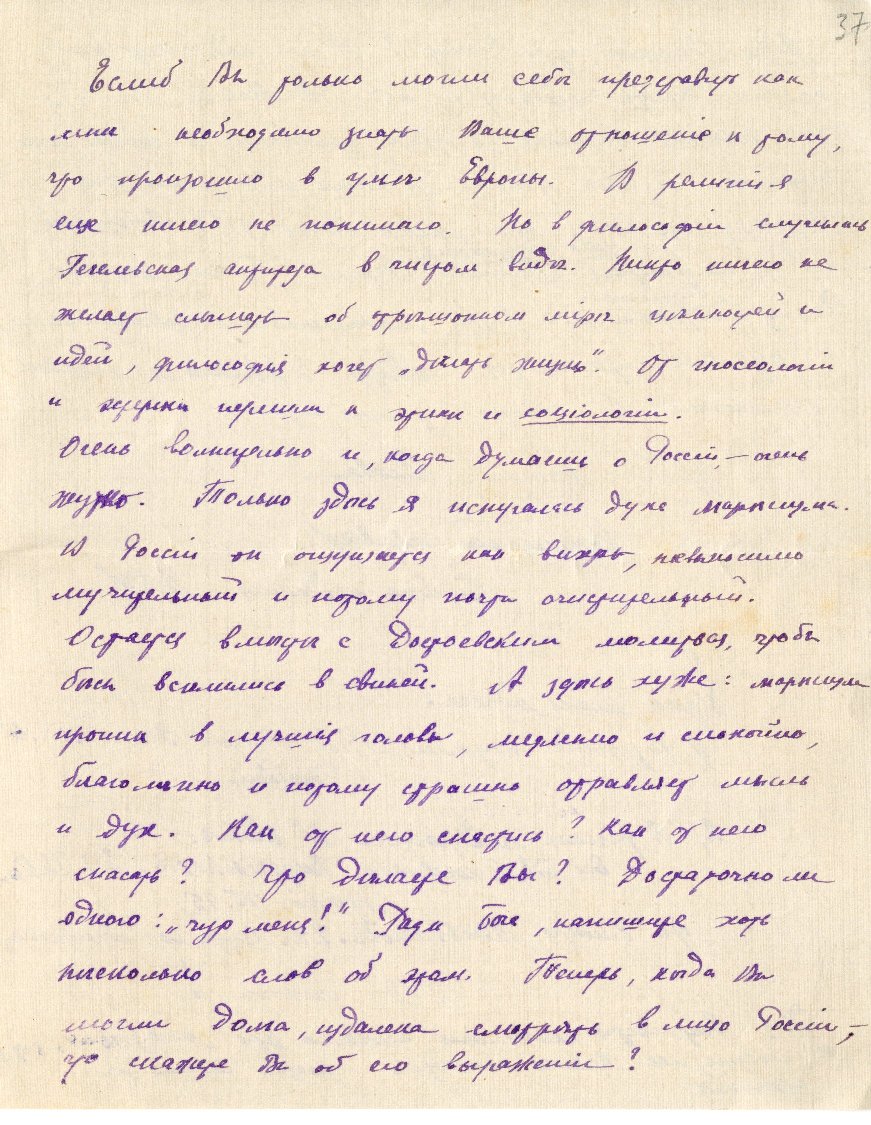 37
Еслиб Вы только могли себѣ представить как
мнѣ необходимо знать Ваше отношеніе к тому,
что произошло в умах Европы. В религіи я
еще ничего не понимаю. Но в философіи случилась
Гегелевская антитеза в чистом видѣ. Никто ничего не
желает слышать об отрѣшонном мірѣ цѣнностей и
идей, философія хочет „дѣлать жизнь". От гносеологіи
и перешли к этикѣ и соціологіи.
Очень волнительно и, когда думаешь о Россіи, – очень
жутко. Только здѣсь я испугалась духа марксизма.
В Россіи он ощущается как вихрь, невыносимо
мучительный и потому почти очистительный.
Остается вмѣстѣ с Достоевским молиться, чтобы
бѣсы вселились в свиней. А здѣсь хуже: марксизм
проник в лучшія головы, медленно и спокойно,
благолѣпно и потому страшно отравляет мысль
и дух. Как от него спастись? Как от него
спасать? Что дѣлаете Вы? Достаточно ли
одного: „чур меня!" Ради Бога, напишите хоть
нѣсколько слов об этом. Теперь, когда Вы
могли издалека смотрѣть в лицо Россіи, –
что скажете Вы об его выраженіи?